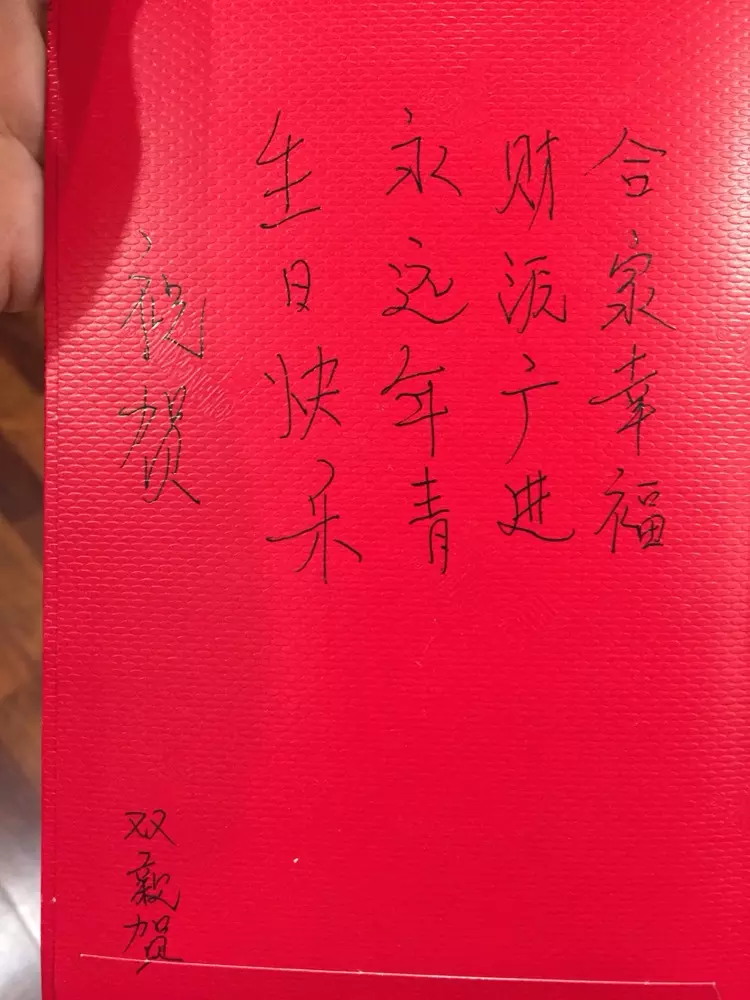 合家幸福
财源广进
永远年青
生日快乐
祝贺
双毅贺